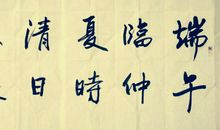 端午
临仲
夏時
清日